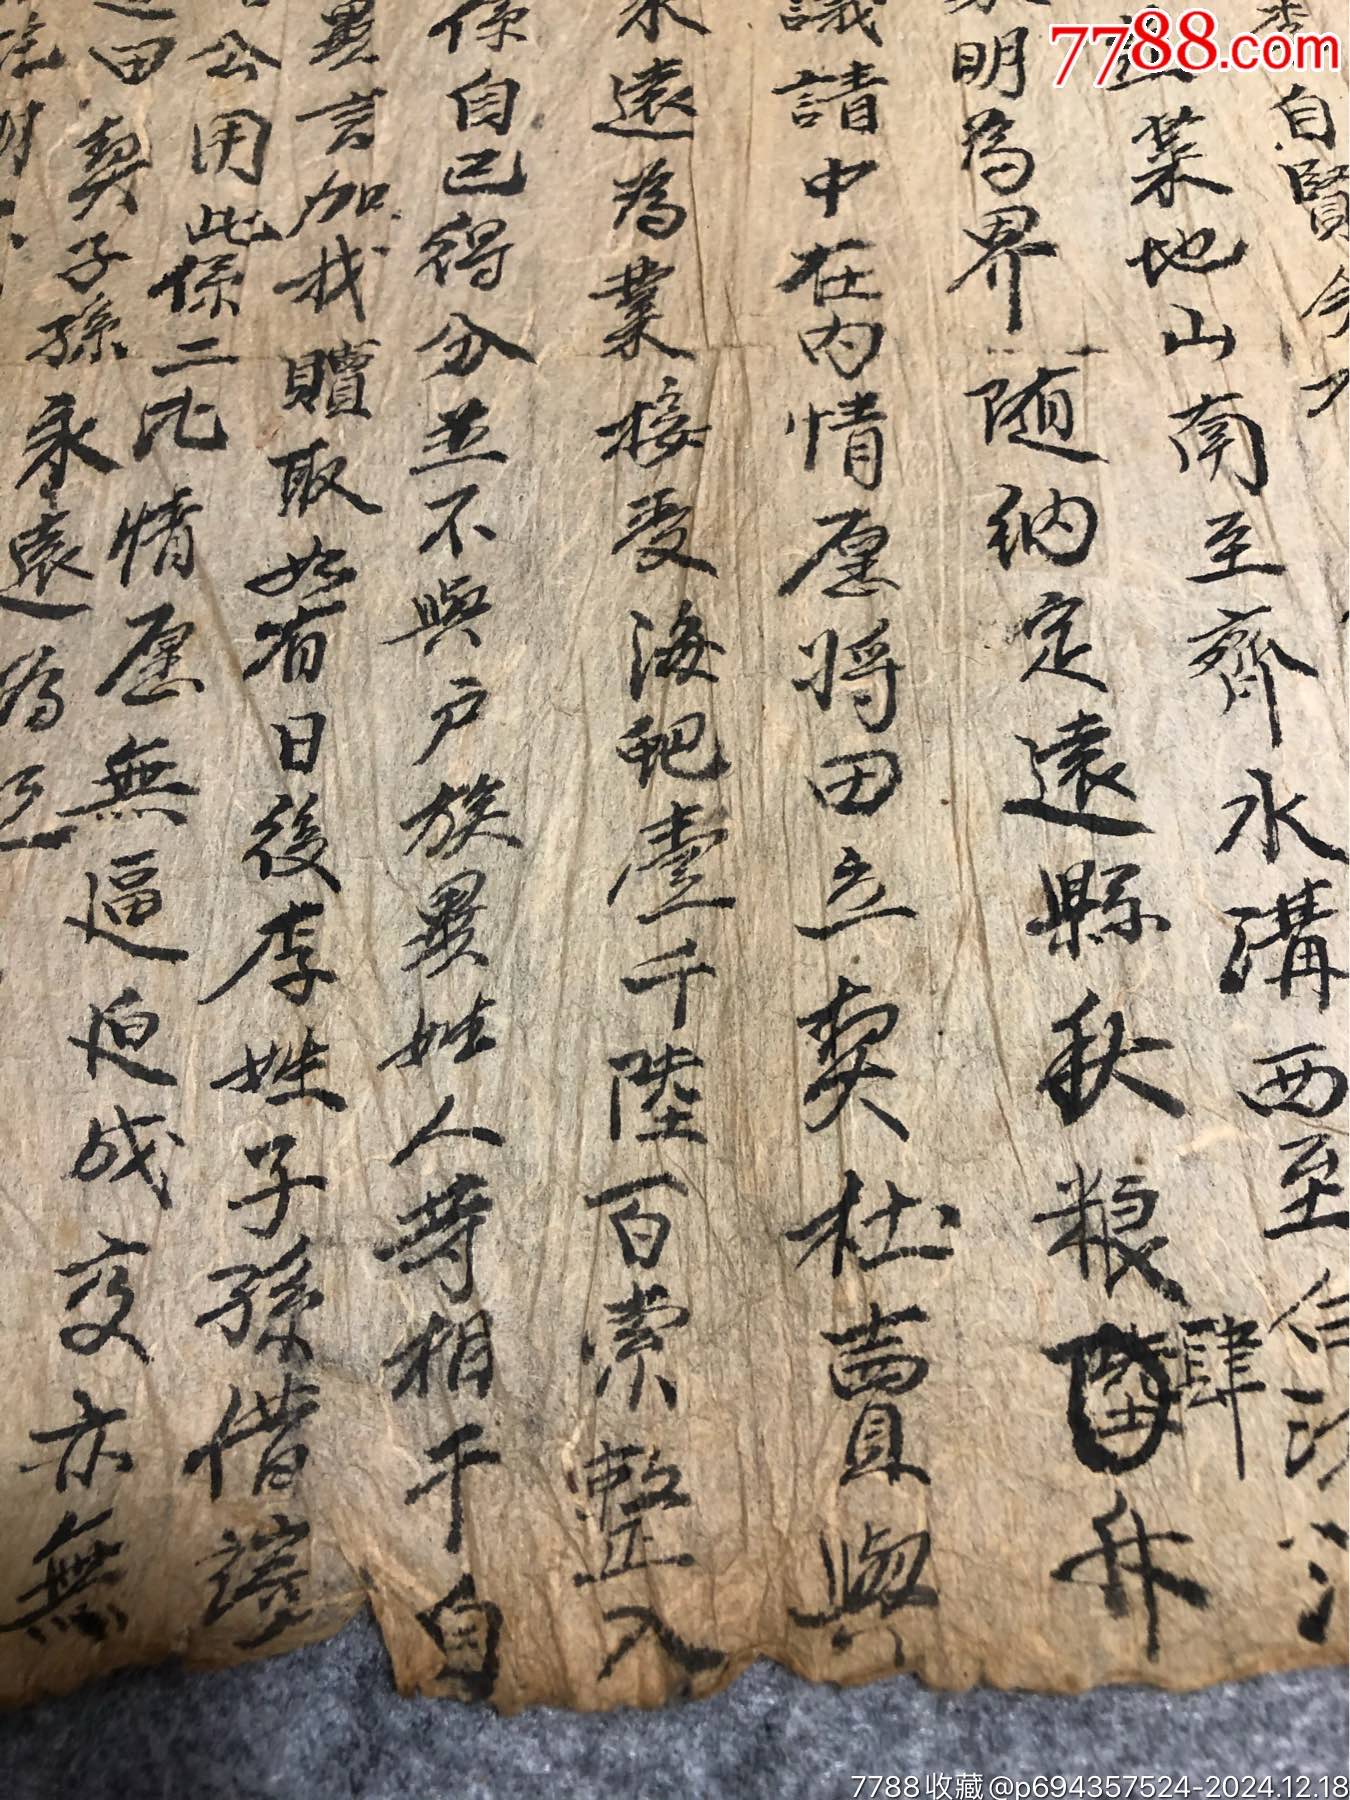 自賢今
業地山南至齊水溝西至
明為界随納定遠縣秋粮陸肆升
議請中在内情愿将田立契杜賣與
永遠為業接受海𧵅壹千陸百索整入
係自己得分並不與户族異姓人等相干自
異言加找贖取如有日後李姓子孫借
公用此係二比情愿無逼迫成交亦無
田契子孫永遠為
7788.com
7788收藏@p694357524-2024.12.18